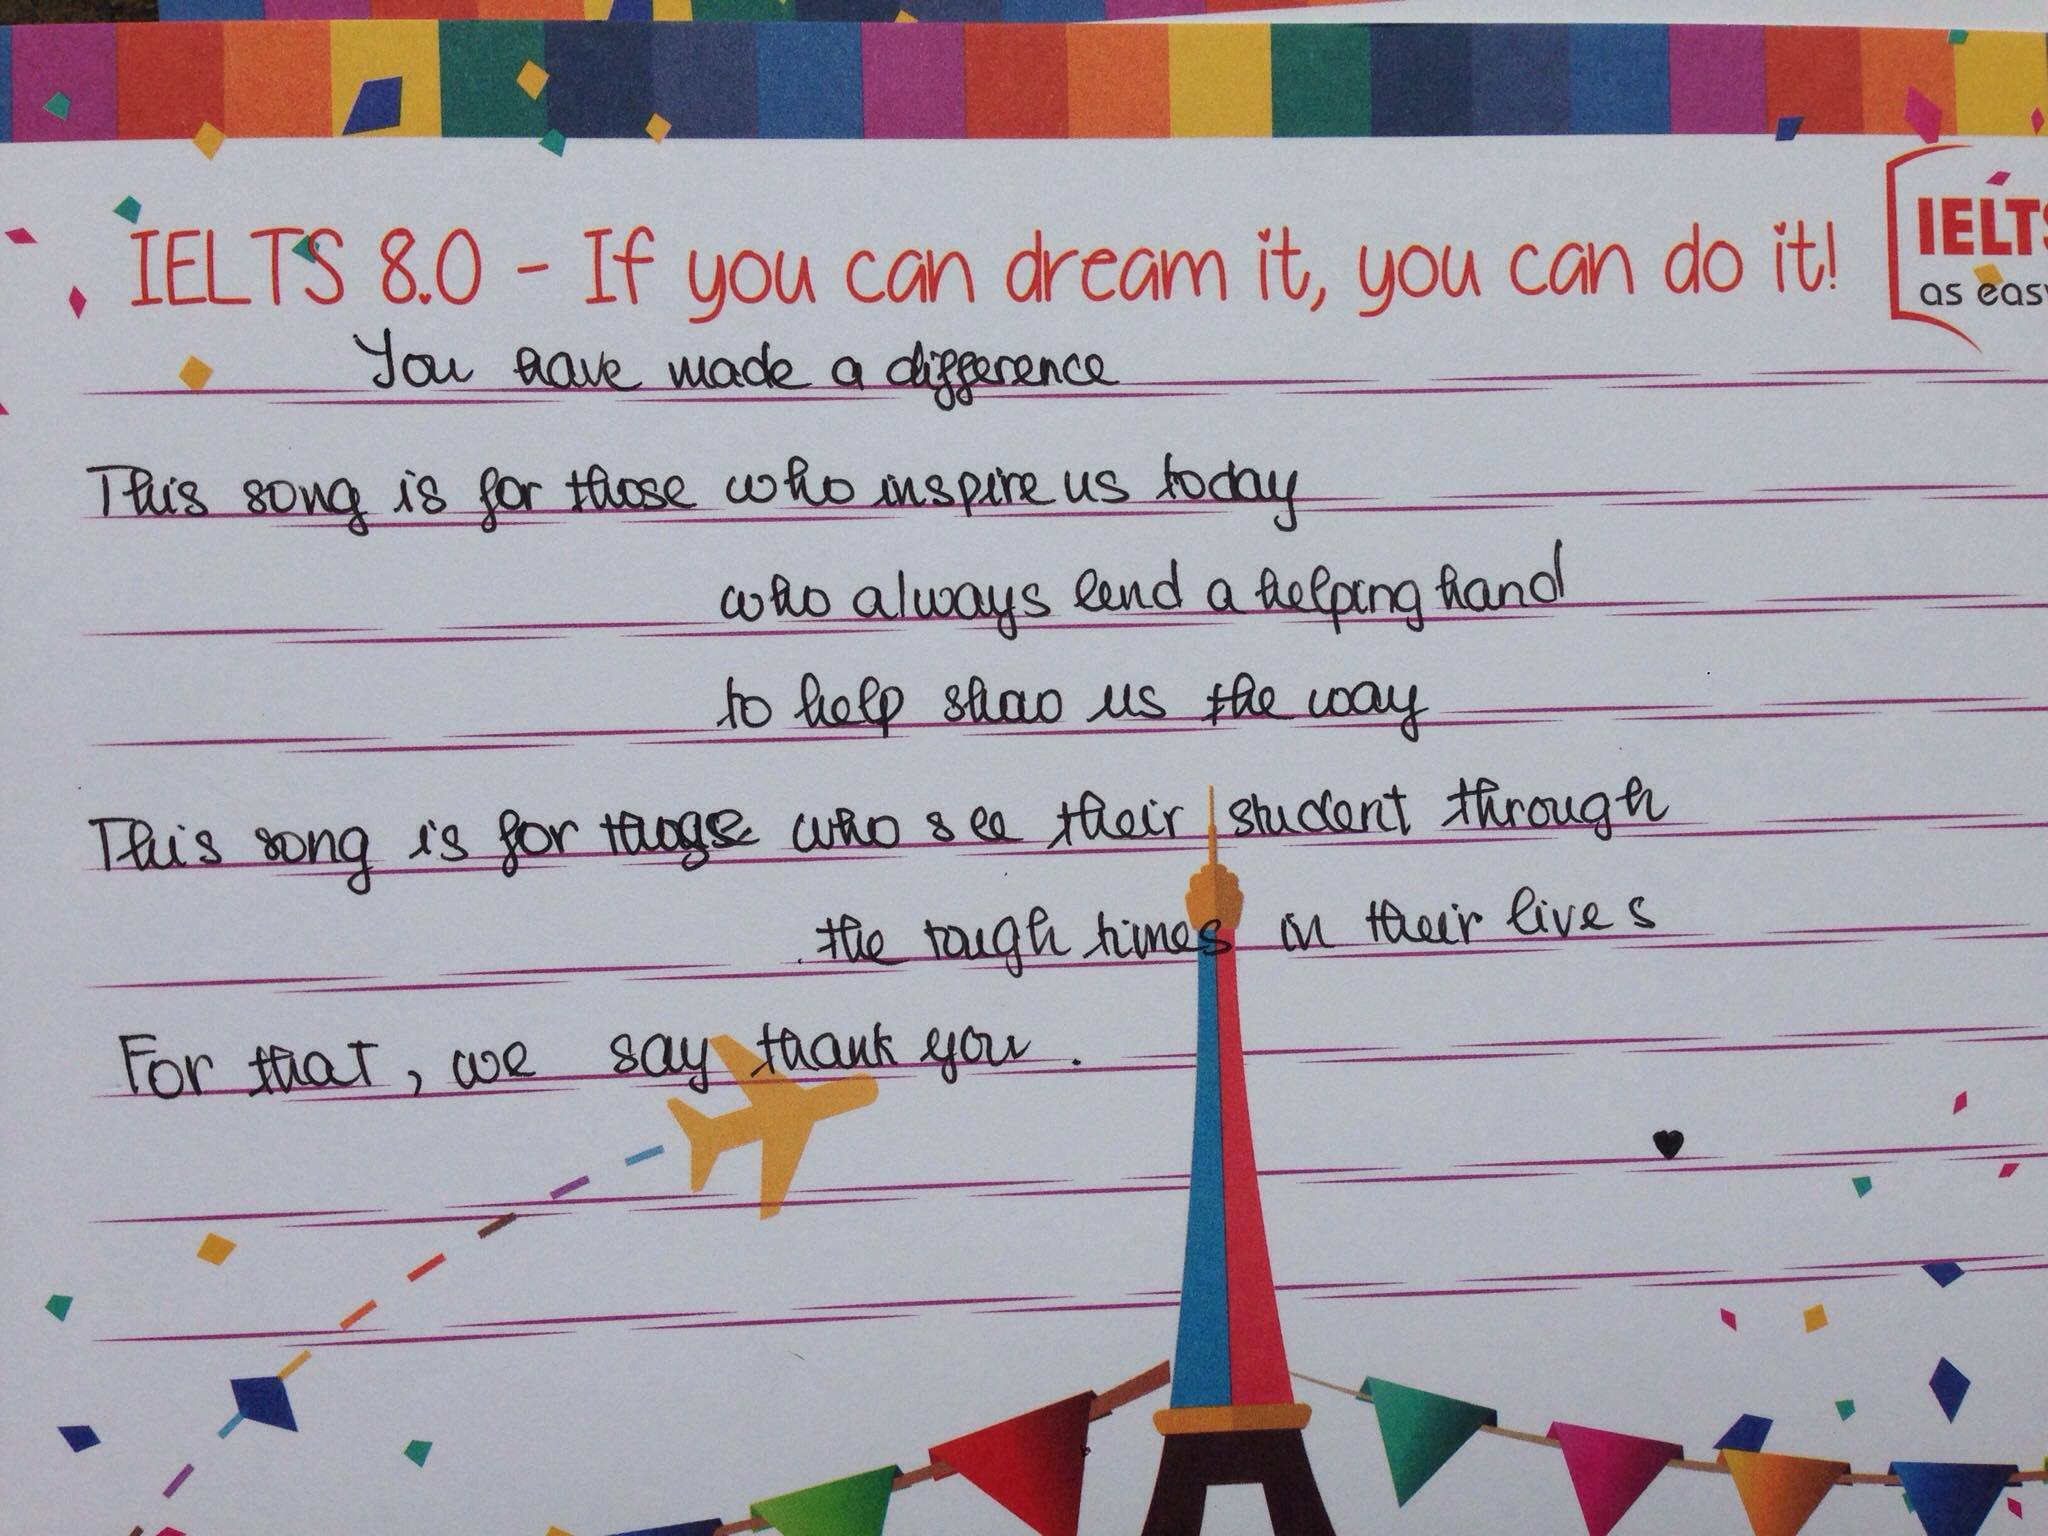 IELTS 8.0 - If you can dream it, you can do it!
IELTS
as easy
You have made a difference
This song is for those who inspire us today
who always lend a helping hand
to help show us the way
This song is for those who see their student through
the rough times in their lives
For that, we say thank you.